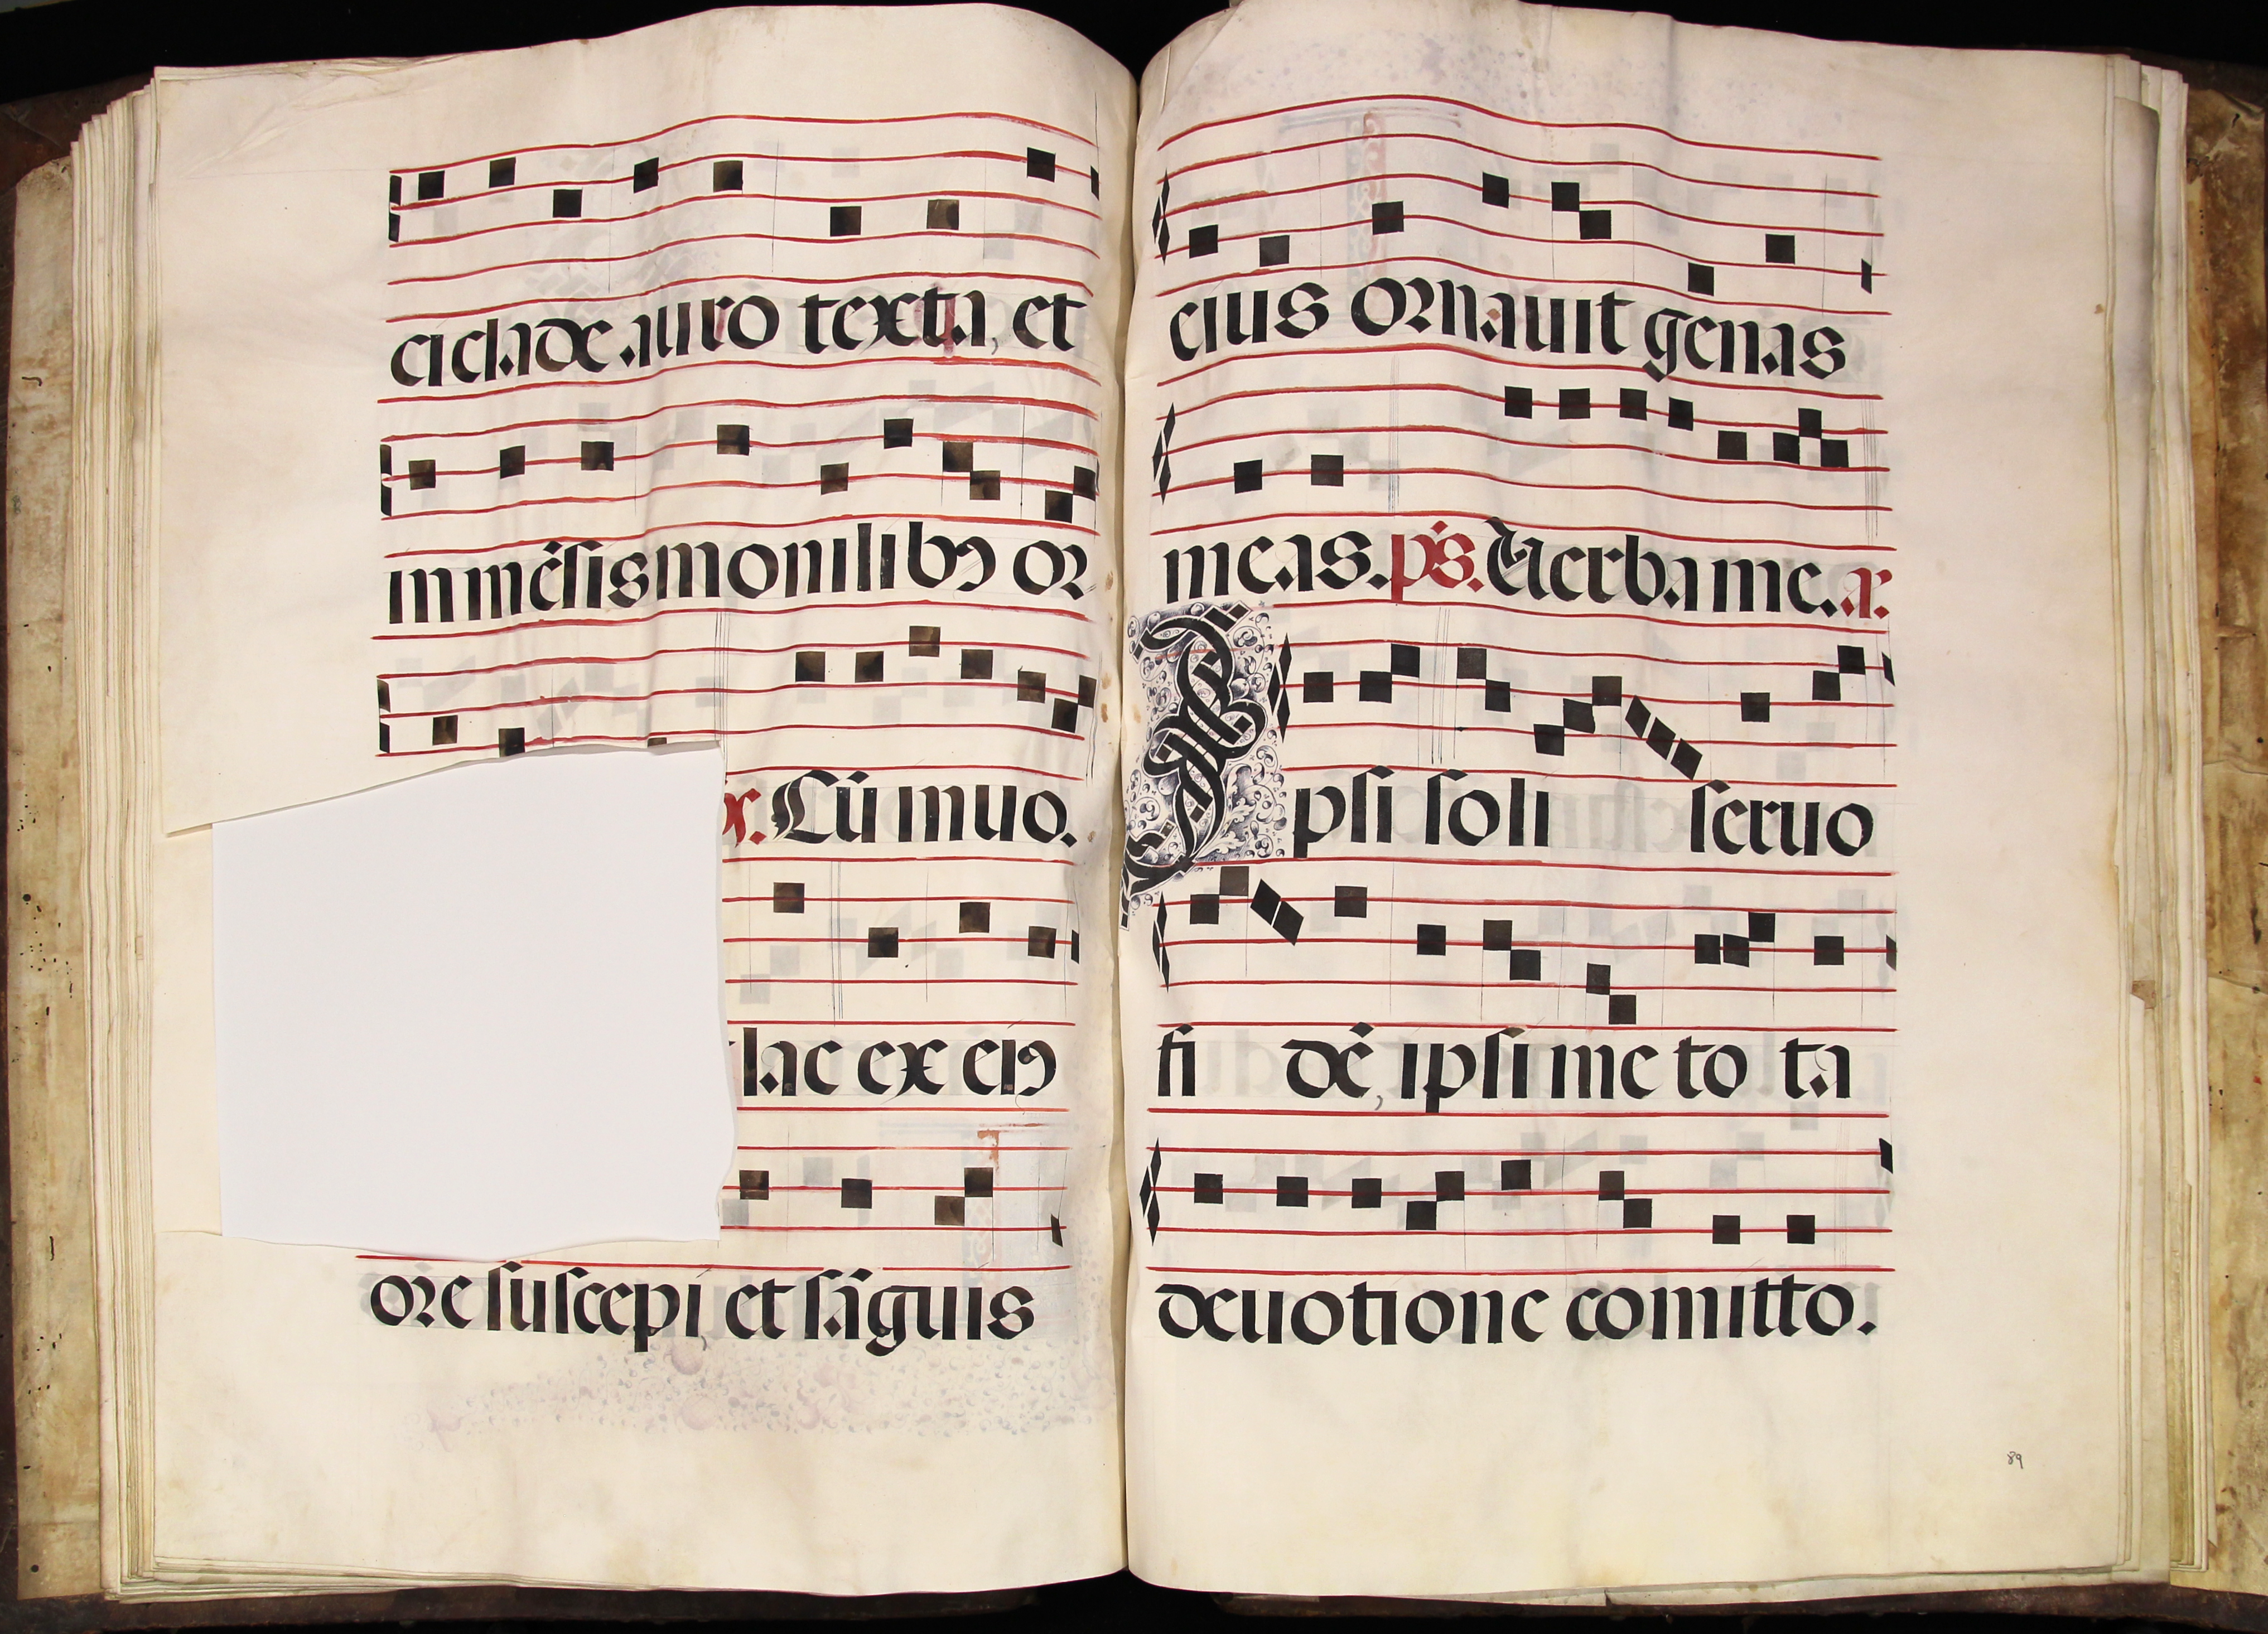 ciclade auro texta, et
inmẽsis monilibꝰ or
x. Cũ inuo.
lac ex eiꝰ
ore suscepi, et sãguis
eius ornauit genas
meas. ps. Uerba me. a.
Ipsi soli seruo
fi dẽ, ipsi me to ta
deuotione comitto.
89